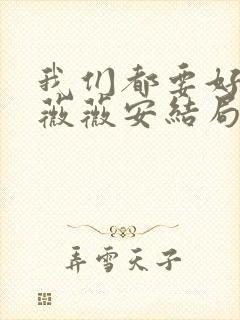 我们都要好
薇薇安结局
弄雪天子